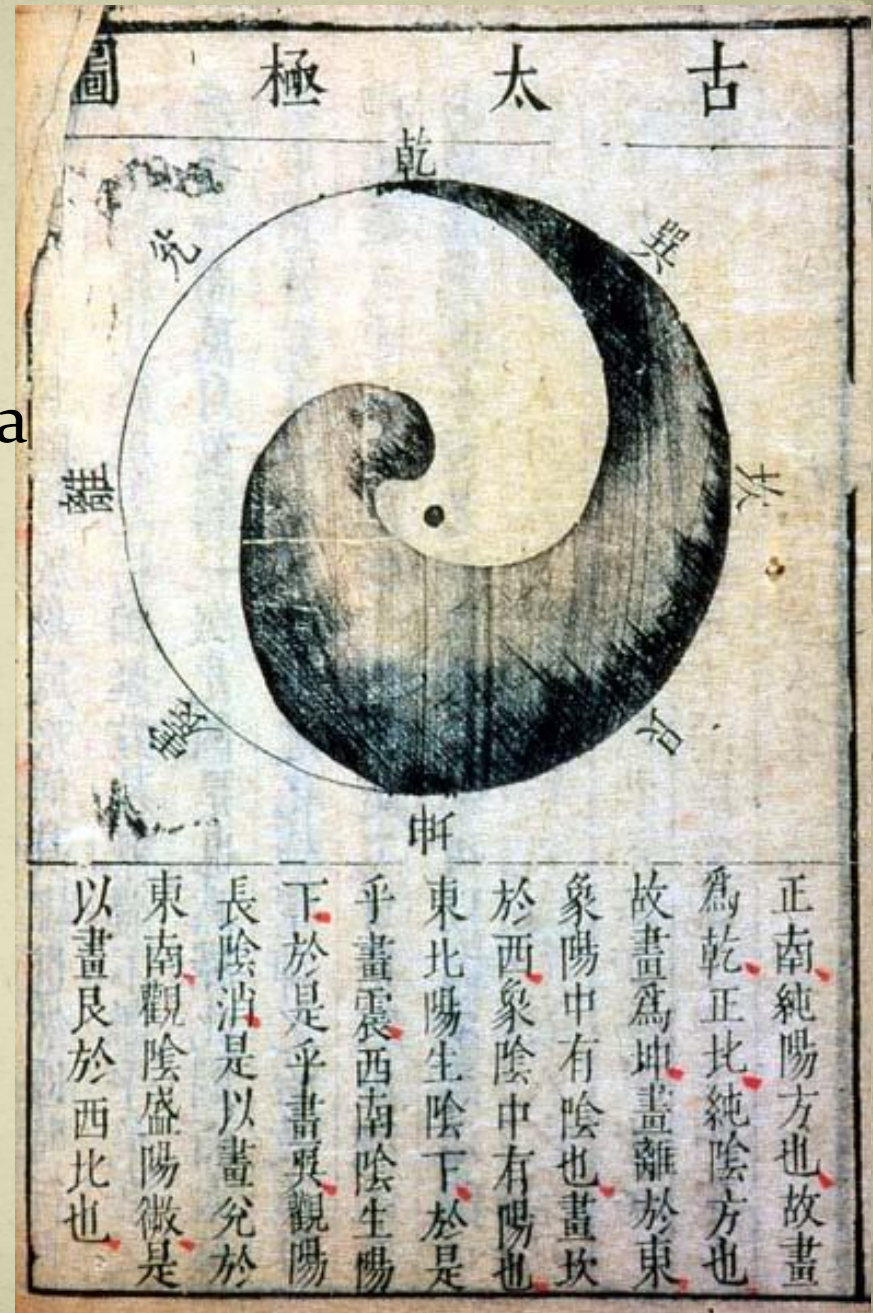 古太極圖
乾
兊
巽
a
離
坎
震
艮
坤
正南純陽方也故畫
爲乾正北純陰方也
故畫爲坤畫離於東
象陽中有陰也畫坎
於西象陰中有陽也
東北陽生陰下於是
乎畫震西南陰生陽
下於是乎畫巽觀陽
長陰消是以畫兊於
東南觀陰盛陽微是
以畫艮於西北也